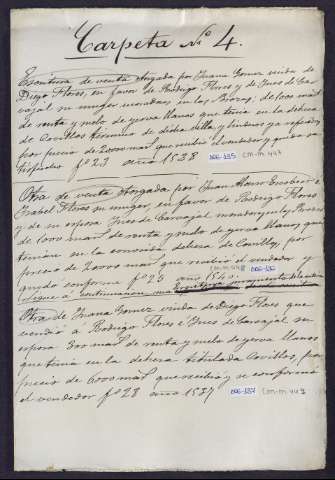 Carpeta Nº 4.
Escritura de venta otorgada por Juana Gomez viuda de
Diego Flores, en favor de Rodrigo Flores y de Ines de Car-
vajal su muger moradores en las Brozas, de 1000 mard
de renta y medio de yerva llanos que tenia en la dehesa
de Covillos término de dicha villa, y linderos ya referidos,
por precio de 20000 mard que recibio el vendedor y quedó sa-
tisfecho fº 23 año 1538 006-135 cm-m 443
Otra de venta otorgada por Juan Alonso Escobar e
Isabel Flores su muger, en favor de Rodrigo Flores
y de su esposa Ines de Carvajal moradores en las Brozas
de 1000 mard de renta y medio de yerva llanos que
tenian en la consabida dehesa de Covillos, por
precio de 20000 mard que recibió el vendedor y
quedó conforme fº 25 año 1540. cm-m 448 006-136
Sigue á continuacion una Escritura
Otra de Juana Gomez viuda de Diego Flores que
vendió á Rodrigo Flores e Ines de Carvajal su
esposa 300 mard de renta y medio de yerva llanos
que tenia en la dehesa titulada Covillos, por
precio de 6000 mard que recibió y se conformó
el vendedor fº 28 año 1537 006-137 cm-m 443